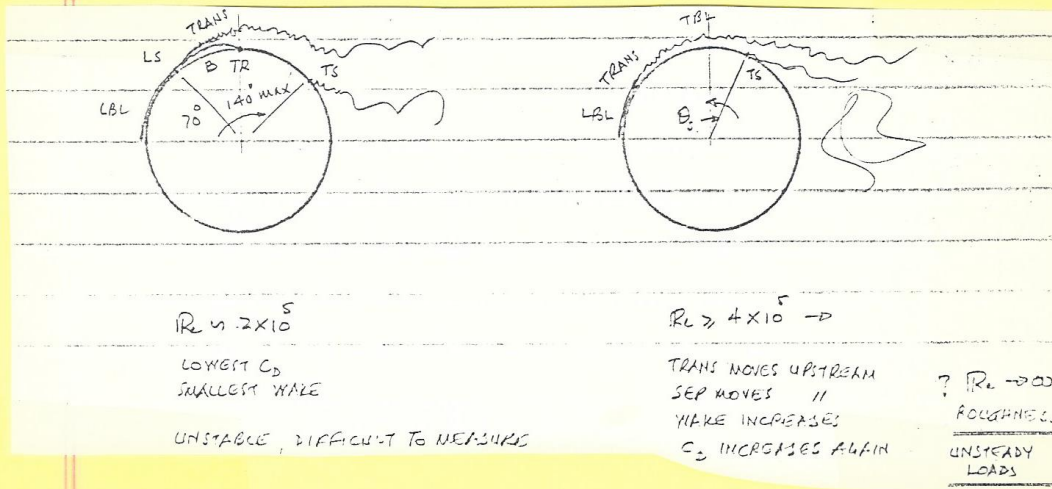 TRANS
LS
B TR
TS
LBL
70°
140° MAX
Re ~ 2×10⁵
LOWEST CD
SMALLEST WAKE
UNSTABLE, DIFFICULT TO MEASURE
TBL
TRANS
TS
LBL
Re ≥ 4×10⁵ →
TRANS MOVES UPSTREAM
SEP MOVES "
WAKE INCREASES
CD INCREASES AGAIN
? Re →∞
ROUGHNESS
UNSTEADY
LOADS